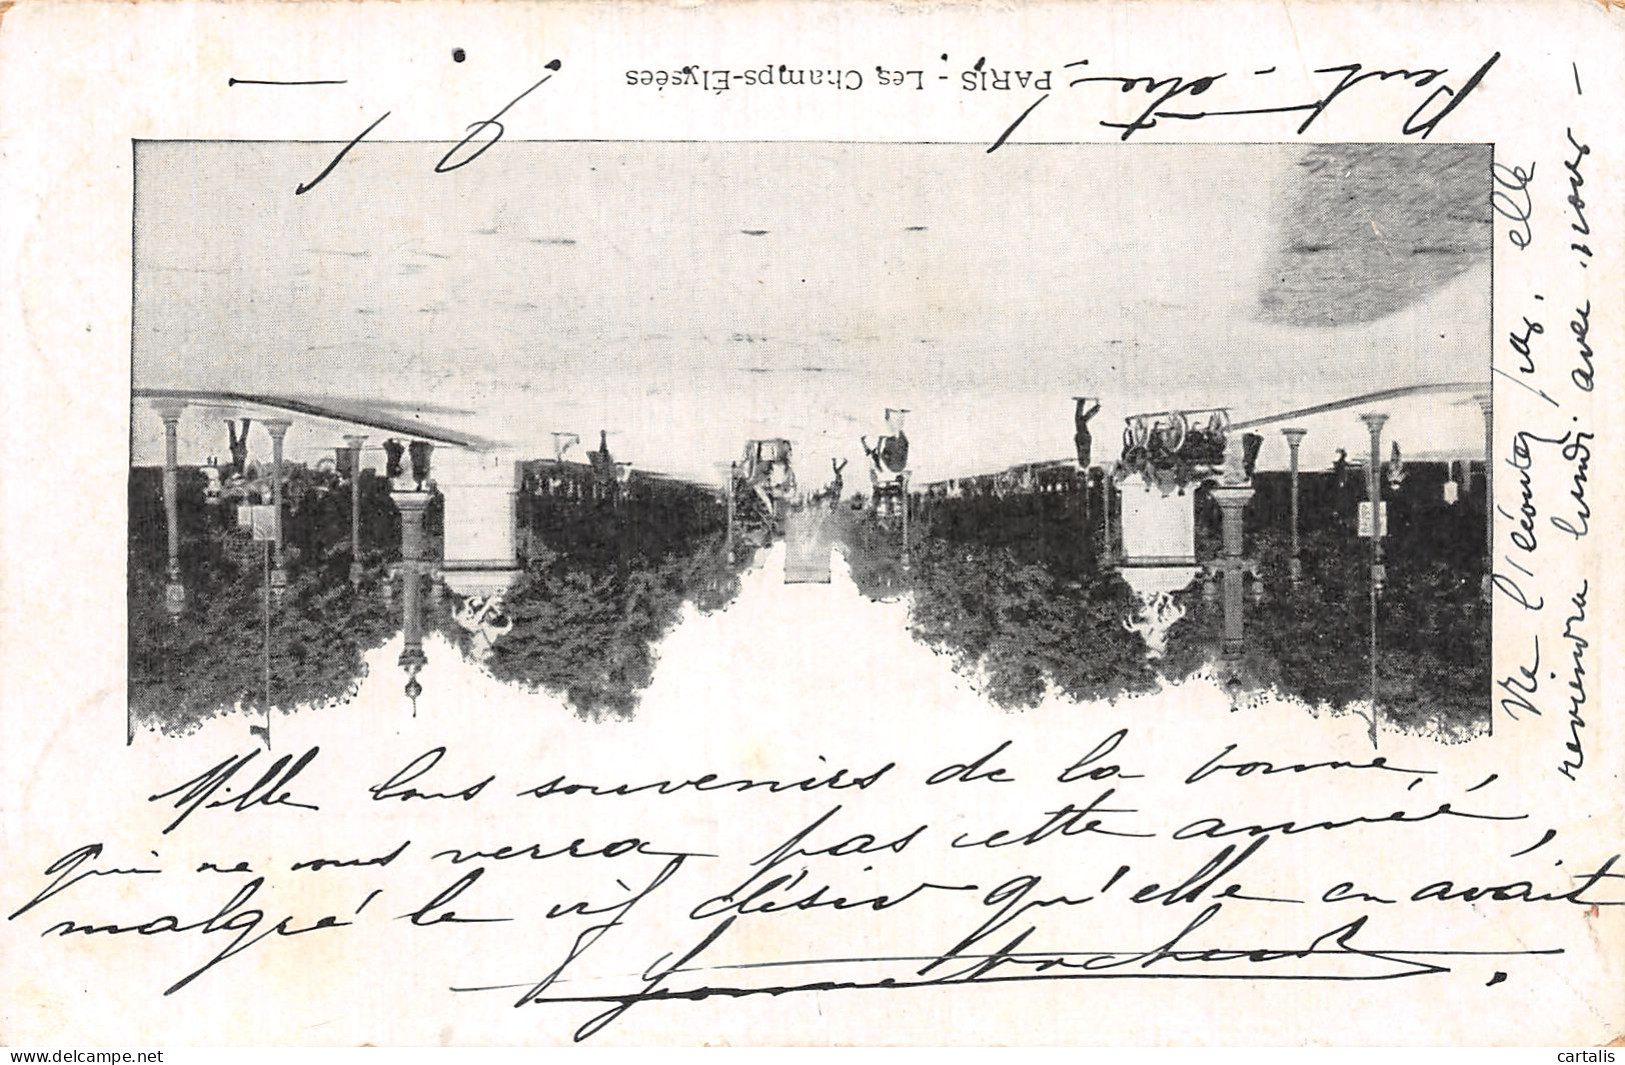 PARIS - Les Champs-Élysées
Mille bons souvenirs de la bonne,
qui ne vous verra pas cette année,
malgré le vif désir qu'elle en avait
Yvonne
Ne l'écoutez pas, elle
reviendra lundi avec nous -
Peut-être,
! ? ! -
www.delcampe.net
cartalis